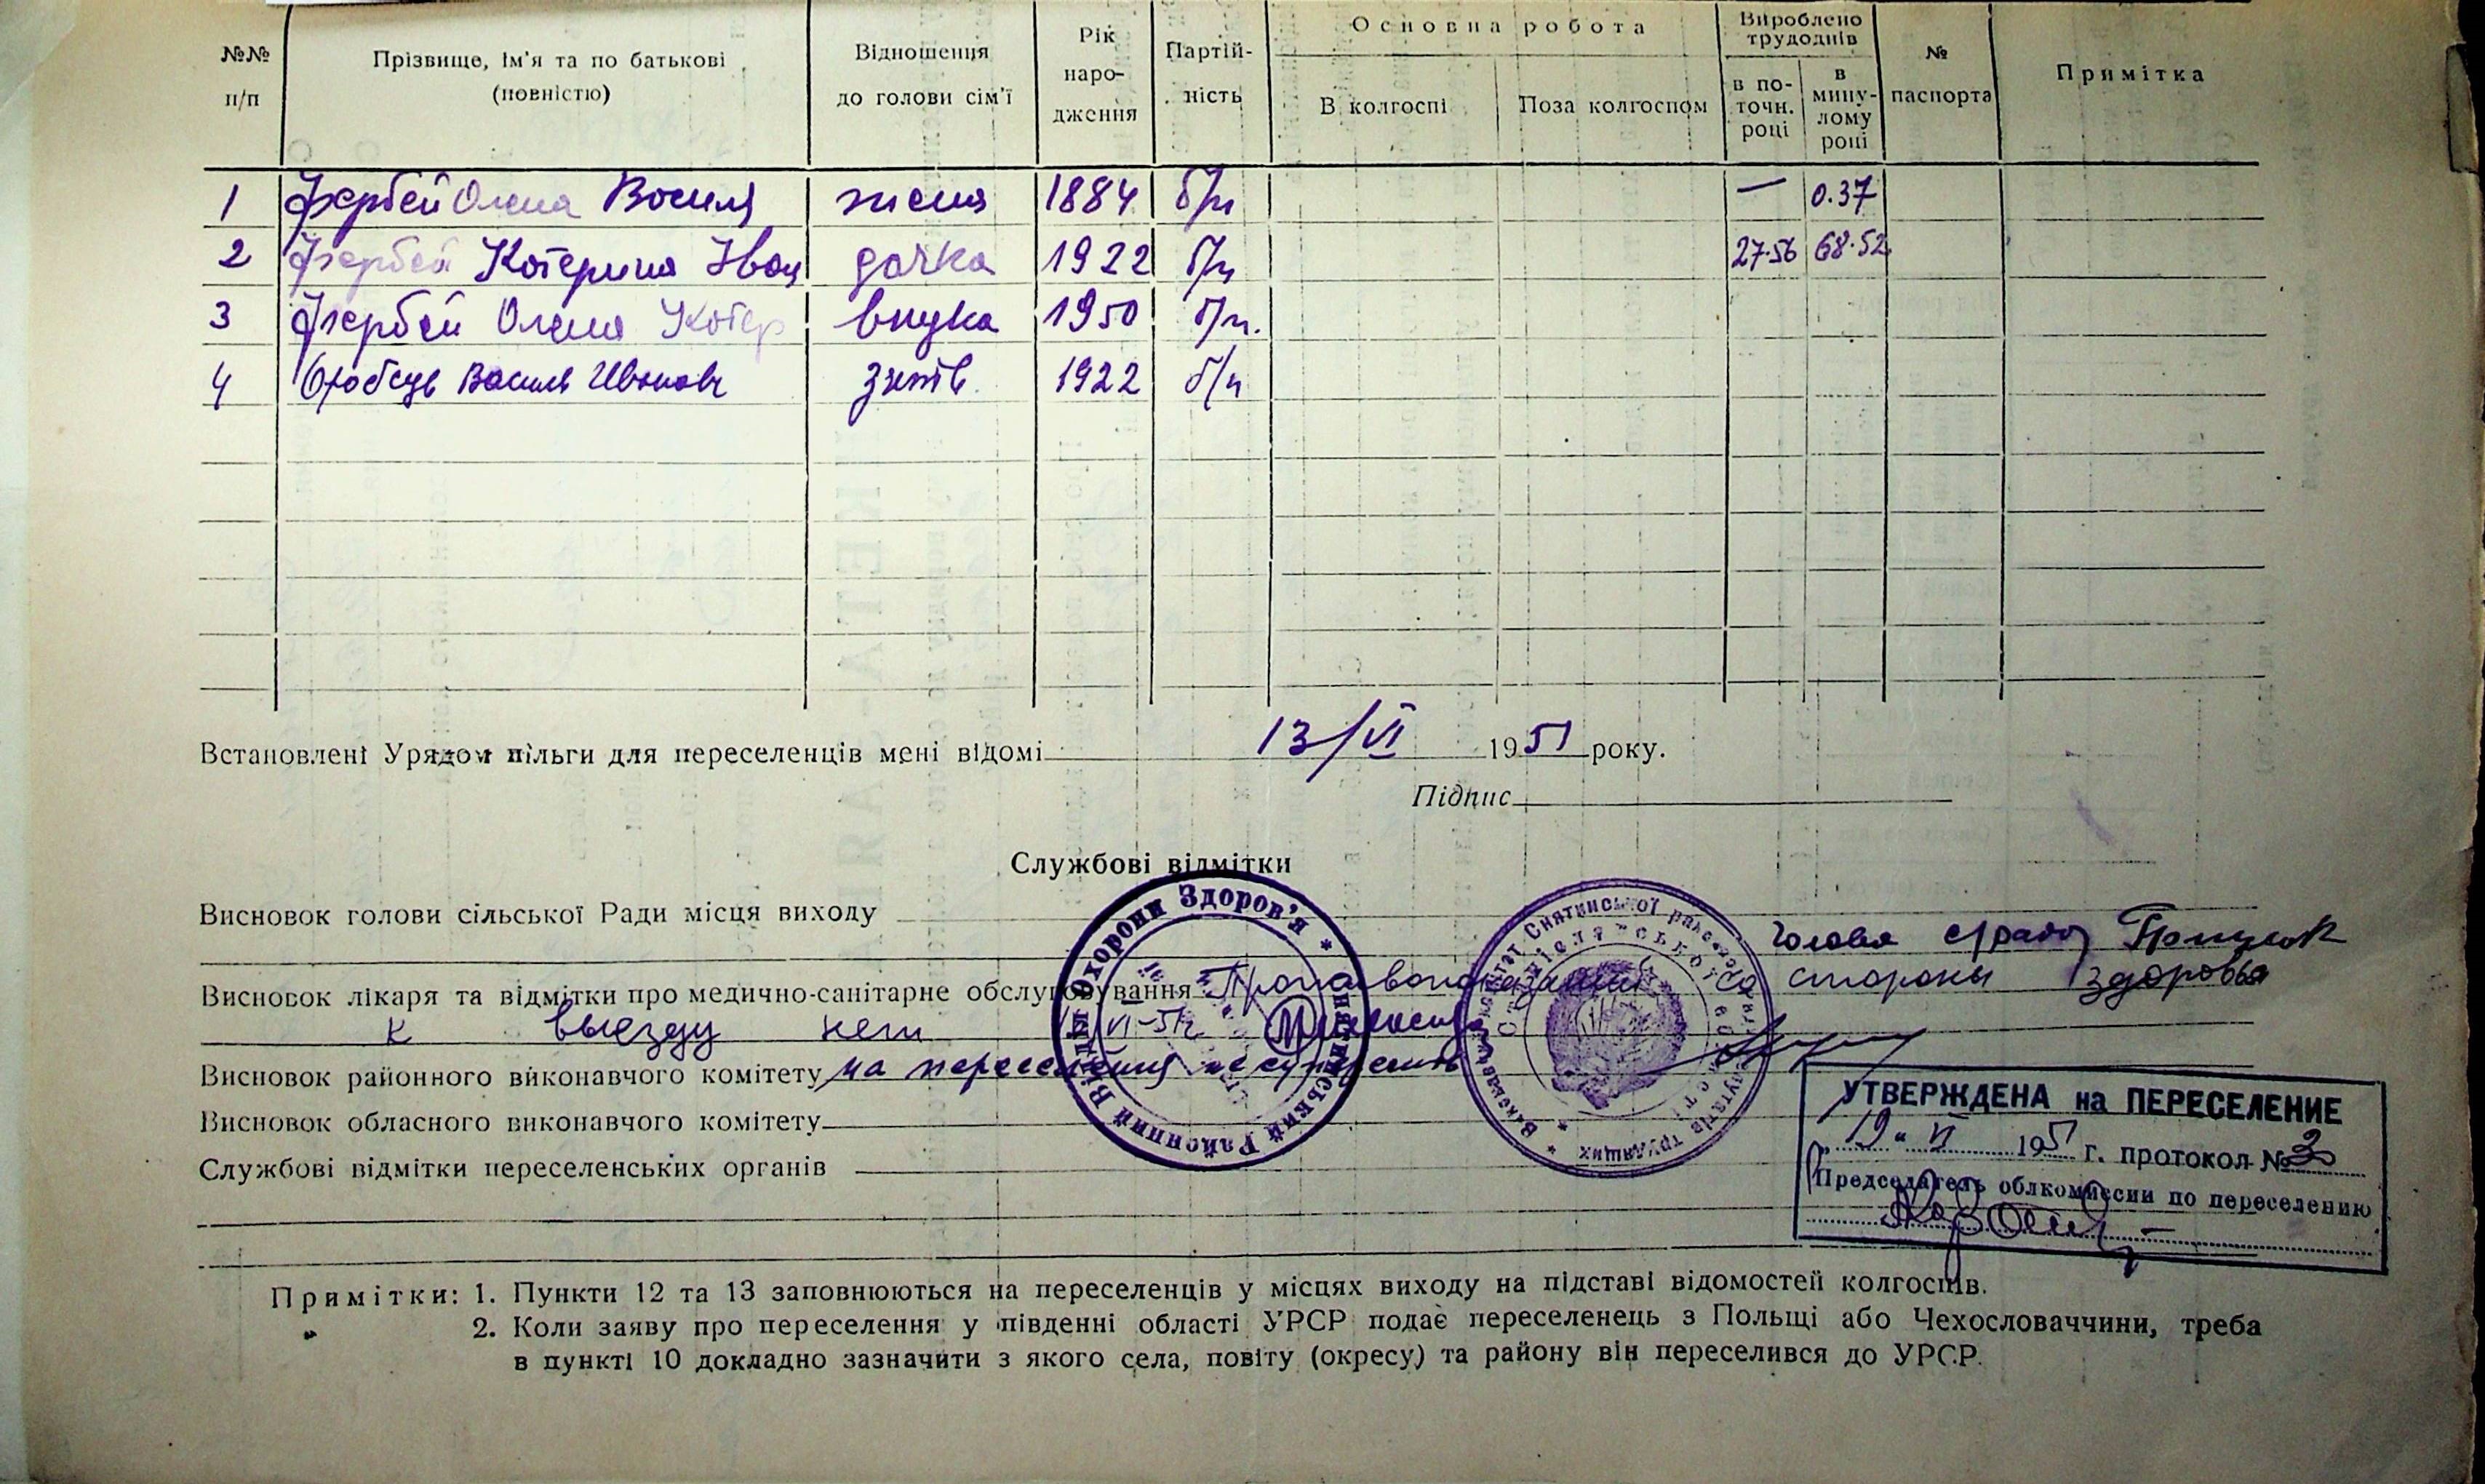 №№ п/п
Прізвище, ім'я та по батькові (повністю)
Відношення до голови сім'ї
Рік народження
Партійність
Основна робота
В колгоспі
Поза колгоспом
Вироблено трудоднів
в поточн. році
в минулому році
№ паспорта
Примітка
1 Олена Василя жена 1884 б/п — 0.37
2 Катерина Іван дочка 1922 б/п 27.56 68.52
3 Олена Катер внука 1950 б/п.
4 Василь Иванович зять 1922 б/п
Встановлені Урядом пільги для переселенців мені відомі 13/VI 1951 року.
Підпис
Службові відмітки
Висновок голови сільської Ради місця виходу
голова с/ради
Висновок лікаря та відмітки про медично-санітарне обслуговування Противопоказаний со стороны здоровья
к выезду нет VI-51г
Висновок районного виконавчого комітету на переселения
Висновок обласного виконавчого комітету
Службові відмітки переселенських органів
Районний Відділ Охорони Здоров'я *
Снятинської районної
Станіславської області
депутатів трудящих
УТВЕРЖДЕНА на ПЕРЕСЕЛЕНИЕ
„19" VI 1951 г. протокол №3
Председатель облкомиссии по переселению
Примітки: 1. Пункти 12 та 13 заповнюються на переселенців у місцях виходу на підставі відомостей колгоспів.
2. Коли заяву про переселення у південні області УРСР подає переселенець з Польщі або Чехословаччини, треба
в пункті 10 докладно зазначити з якого села, повіту (окресу) та району він переселився до УРСР.